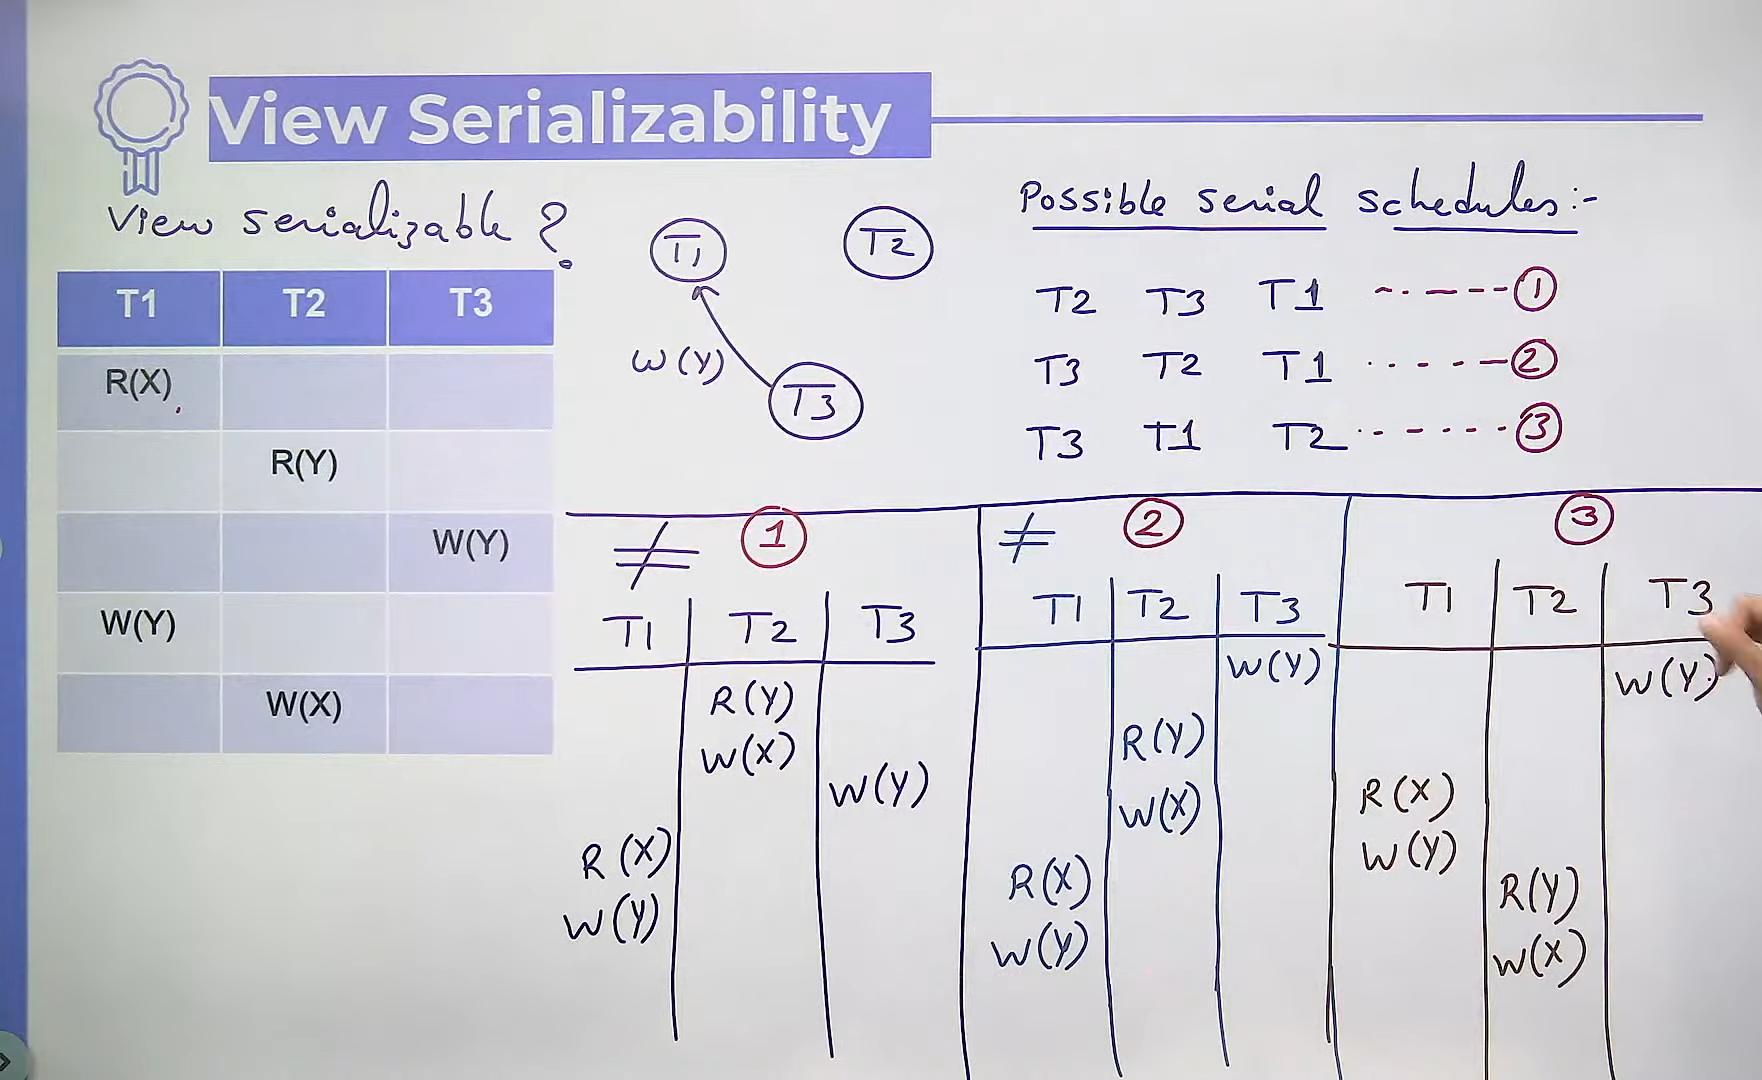 View Serializability
View serializable ?
T1 T2 T3
R(X)
R(Y)
W(Y)
W(Y)
W(X)
T1 T2
W(Y)
T3
Possible serial schedules:-
T2 T3 T1 ------ 1
T3 T2 T1 ------ 2
T3 T1 T2 ------ 3
≠ 1
T1 T2 T3
R(Y)
W(X)
W(Y)
R(X)
W(Y)
≠ 2
T1 T2 T3
W(Y)
R(Y)
W(X)
R(X)
W(Y)
3
T1 T2 T3
W(Y)
R(X)
W(Y)
R(Y)
W(X)